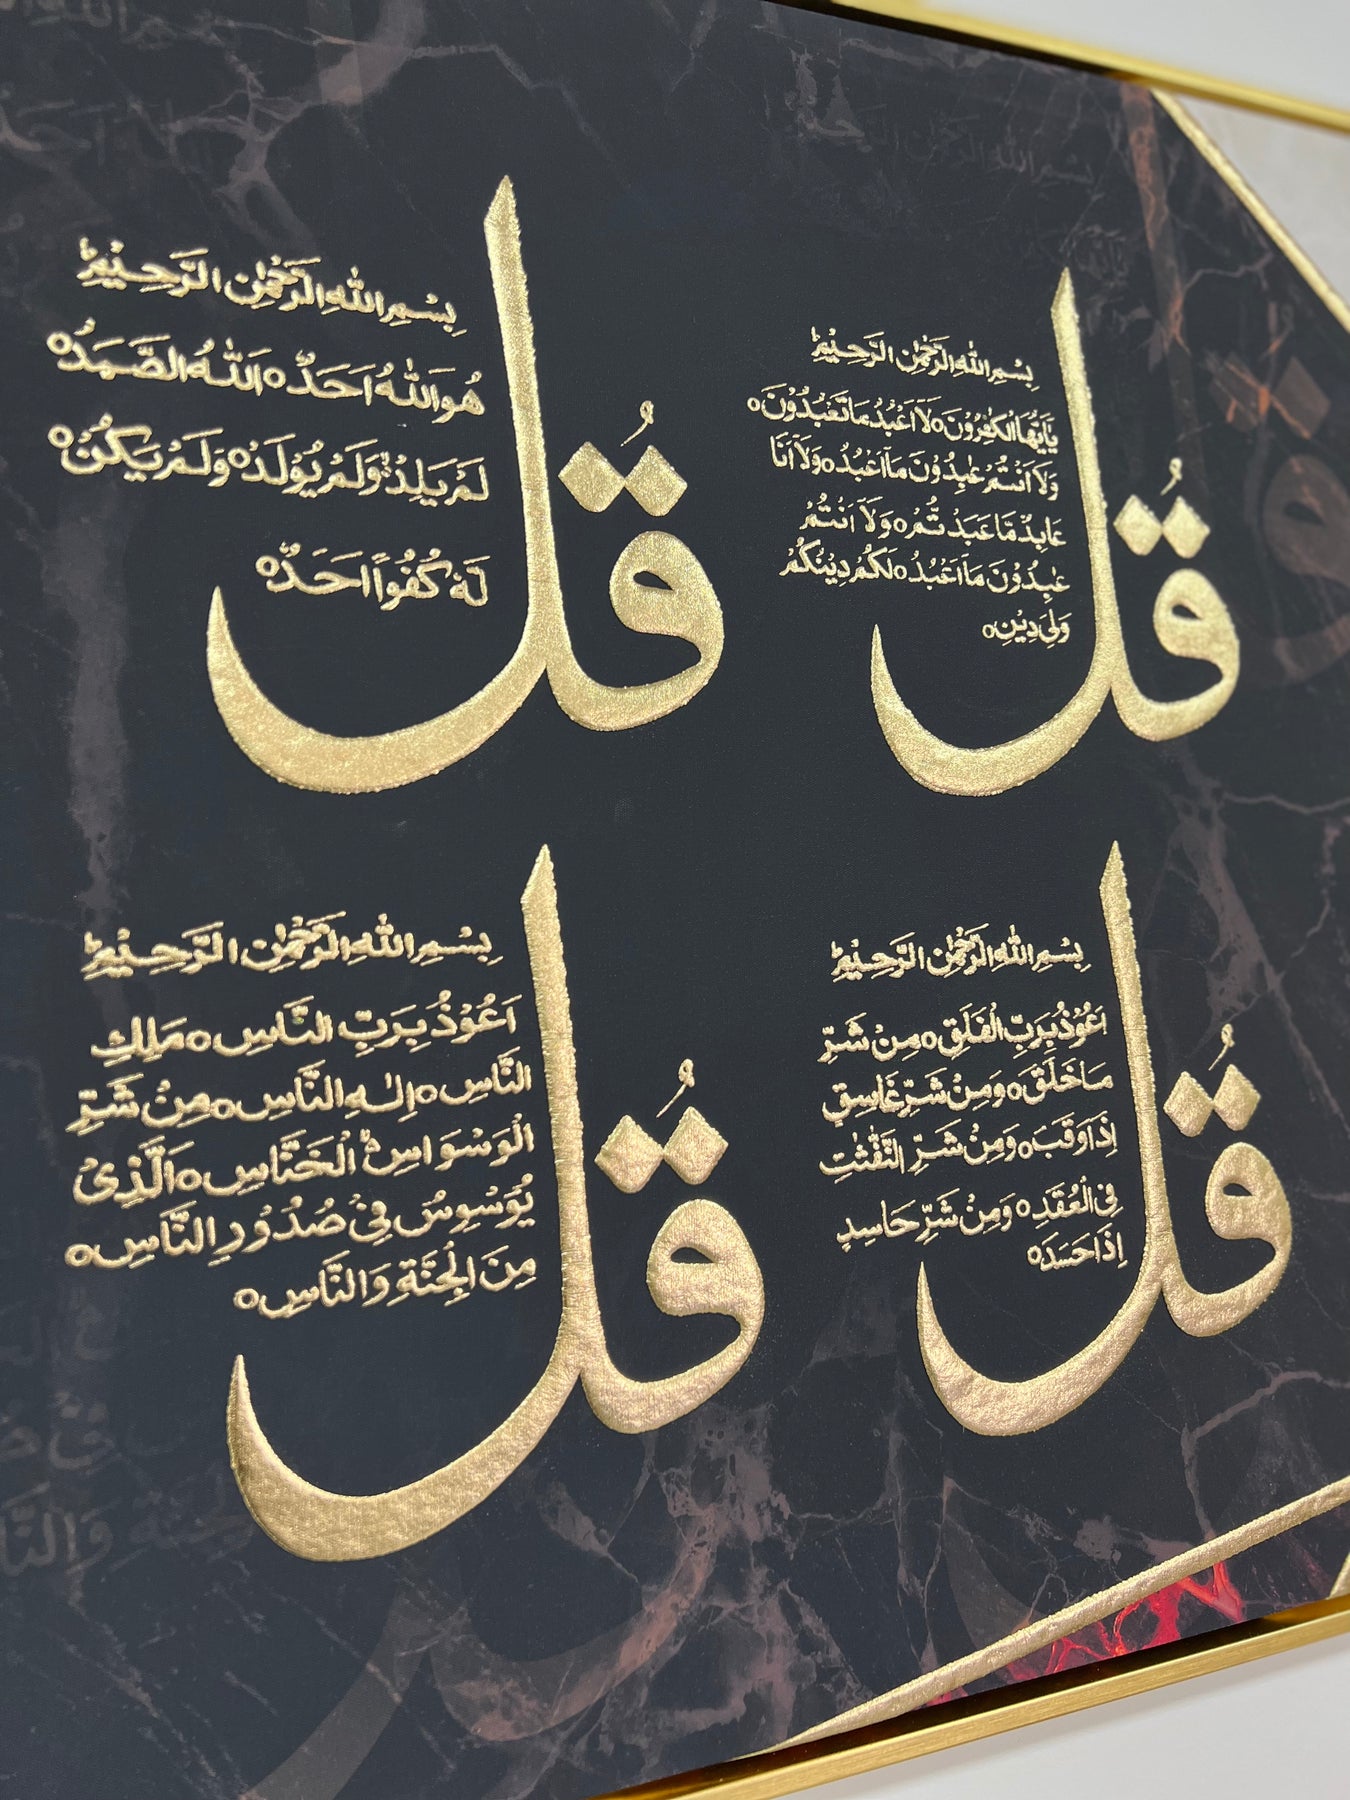 قُل
بِسْمِ اللهِ الرَّحْمٰنِ الرَّحِيْمِ
يٰٓاَيُّهَا الْكٰفِرُوْنَ ○ لَآ اَعْبُدُ مَا تَعْبُدُوْنَ ○
وَلَآ اَنْتُمْ عٰبِدُوْنَ مَآ اَعْبُدُ ○ وَلَآ اَنَا
عَابِدٌ مَّا عَبَدْتُّمْ ○ وَلَآ اَنْتُمْ
عٰبِدُوْنَ مَآ اَعْبُدُ ○ لَكُمْ دِيْنُكُمْ
وَلِيَ دِيْنِ ○
قُل
بِسْمِ اللهِ الرَّحْمٰنِ الرَّحِيْمِ
هُوَ اللّٰهُ اَحَدٌ ○ اَللّٰهُ الصَّمَدُ ○
لَمْ يَلِدْ وَلَمْ يُوْلَدْ ○ وَلَمْ يَكُنْ ○
لَهٗ كُفُوًا اَحَدٌ ○
قُل
بِسْمِ اللهِ الرَّحْمٰنِ الرَّحِيْمِ
اَعُوْذُ بِرَبِّ الْفَلَقِ ○ مِنْ شَرِّ
مَا خَلَقَ ○ وَمِنْ شَرِّ غَاسِقٍ
اِذَا وَقَبَ ○ وَمِنْ شَرِّ النَّفّٰثٰتِ
فِي الْعُقَدِ ○ وَمِنْ شَرِّ حَاسِدٍ
اِذَا حَسَدَ ○
قُل
بِسْمِ اللهِ الرَّحْمٰنِ الرَّحِيْمِ
اَعُوْذُ بِرَبِّ النَّاسِ ○ مَلِكِ
النَّاسِ ○ اِلٰهِ النَّاسِ ○ مِنْ شَرِّ
الْوَسْوَاسِ الْخَنَّاسِ ○ الَّذِيْ
يُوَسْوِسُ فِيْ صُدُوْرِ النَّاسِ ○
مِنَ الْجِنَّةِ وَالنَّاسِ ○